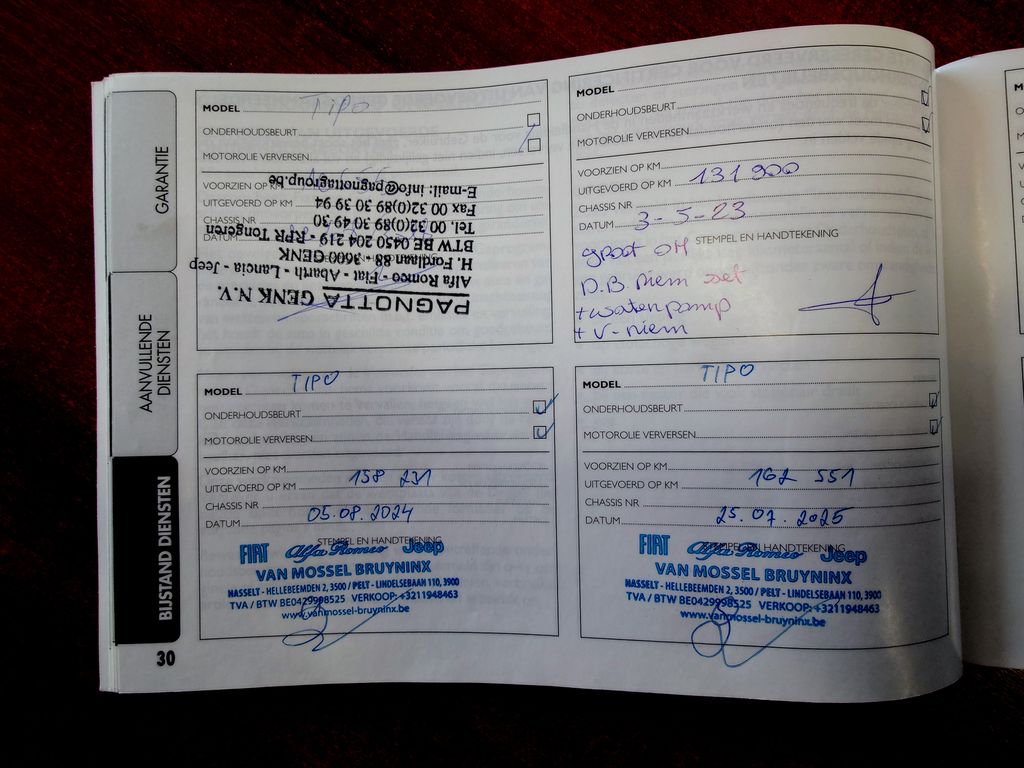 GARANTIE
AANVULLENDE
DIENSTEN
BIJSTAND DIENSTEN
30
MODEL TIPO
ONDERHOUDSBEURT
MOTOROLIE VERVERSEN
VOORZIEN OP KM
UITGEVOERD OP KM
CHASSIS NR
DATUM
PAGNOTTA GENK N.V.
Alfa Romeo - Fiat - Abarth - Lancia - Jeep
H. Fordlaan 88 - 3600 GENK
BTW BE 0450 204 219 - RPR Tongeren
Tel. 00 32(0)89 30 49 30
Fax 00 32(0)89 30 39 94
E-mail: info@pagnottagroup.be
MODEL
ONDERHOUDSBEURT
MOTOROLIE VERVERSEN
VOORZIEN OP KM
UITGEVOERD OP KM 131 900
CHASSIS NR
DATUM 3-5-23
STEMPEL EN HANDTEKENING
groot OH
D.B. riem set
+ waterpomp
+ V-riem
MODEL TIPO
ONDERHOUDSBEURT
MOTOROLIE VERVERSEN
VOORZIEN OP KM
UITGEVOERD OP KM 158 231
CHASSIS NR
DATUM 05.08.2024
STEMPEL EN HANDTEKENING
FIAT Alfa Romeo Jeep
VAN MOSSEL BRUYNINX
HASSELT - HELLEBEEMDEN 2, 3500 / PELT - LINDELSEBAAN 110, 3900
TVA / BTW BE0429998525 VERKOOP: +3211948463
www.vanmossel-bruyninx.be
MODEL TIPO
ONDERHOUDSBEURT
MOTOROLIE VERVERSEN
VOORZIEN OP KM
UITGEVOERD OP KM 162 551
CHASSIS NR
DATUM 25.07.2025
STEMPEL EN HANDTEKENING
FIAT Alfa Romeo Jeep
VAN MOSSEL BRUYNINX
HASSELT - HELLEBEEMDEN 2, 3500 / PELT - LINDELSEBAAN 110, 3900
TVA / BTW BE0429998525 VERKOOP: +3211948463
www.vanmossel-bruyninx.be